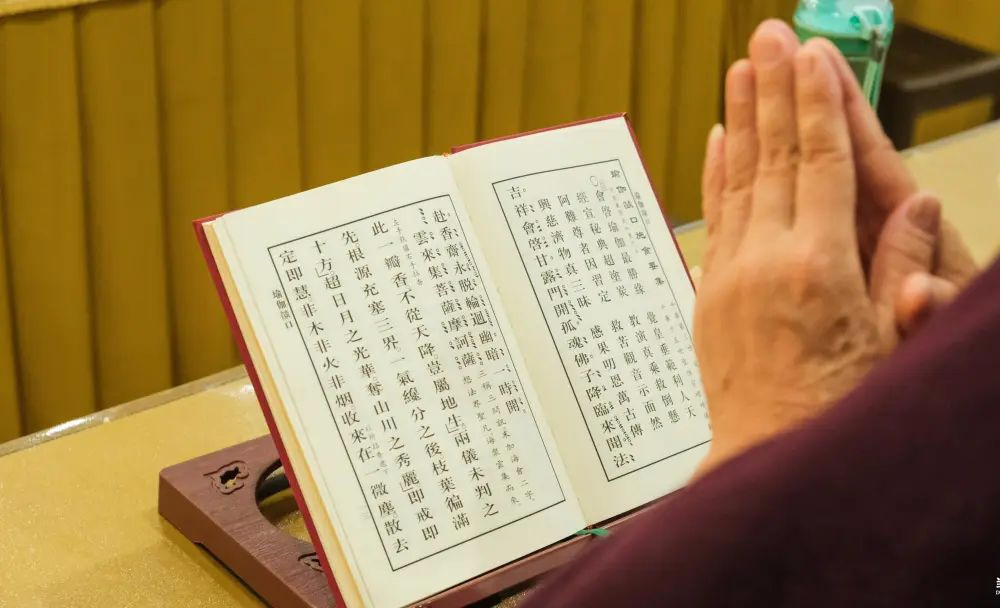 瑜伽燄口施食要集
會啓瑜伽最勝緣 覺皇垂範利人天
經宣秘典超塗炭 教演真乘救倒懸
阿難尊者因習定 救苦觀音示面然
興慈濟物真三昧 感果明恩萬古傳
吉祥會啓甘露門開孤魂佛子降臨來聞法
赴香齋永脫輪迴幽暗一時開
雲來集菩薩摩訶薩 三稱三問訊末加海會二字 想法界聖凡海眾雲集而來
此一瓣香不從天降豈屬地生兩儀未判之
先根源充塞三界一氣纔分之後枝葉徧滿
十方超日月之光華奪山川之秀麗即戒即
定即慧非木非火非烟收來在一微塵散去
瑜伽燄口